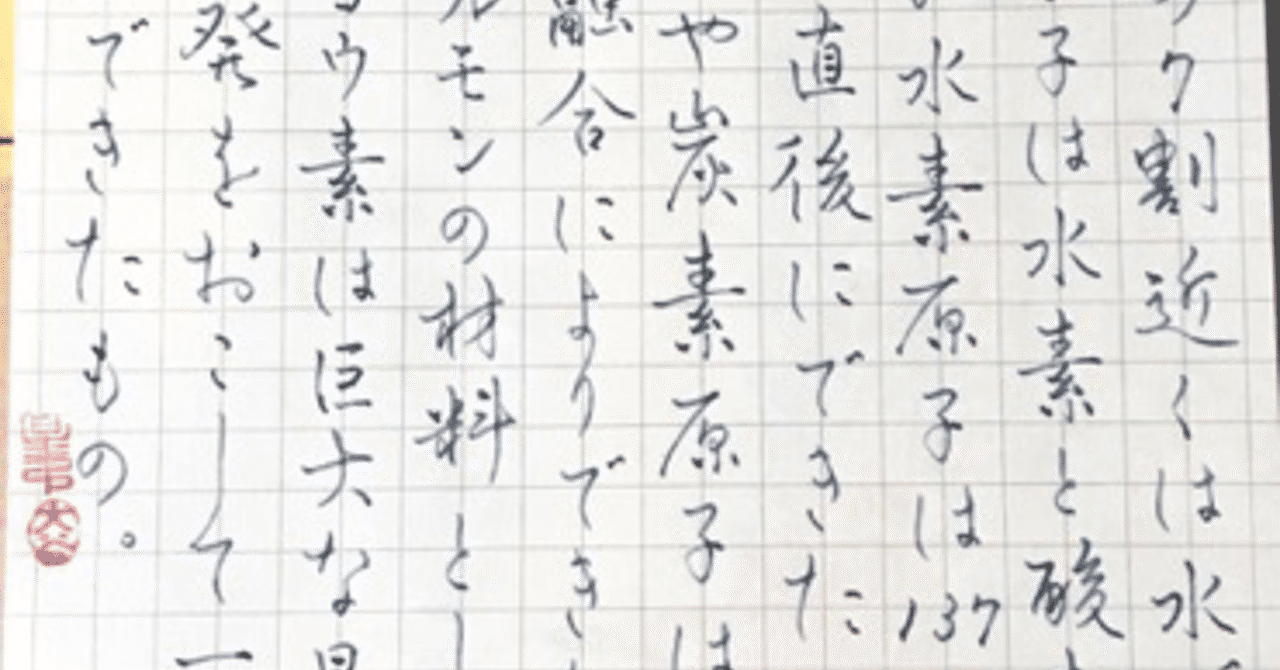 7割近くは水
子は水素と酸
水素原子は137
直後にできた
や炭素原子は
融合によりでき
ルモンの材料とし
ウ素は巨大な
発をおこして一
できたもの。